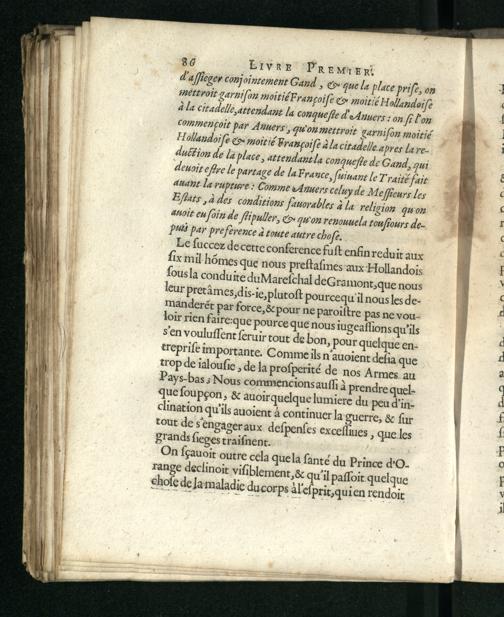 86 LIVRE PREMIER.
d'assieger conjointement Gand, & que la place prise, on
mettroit garnison moitié Françoise & moitié Hollandoise
à la citadelle, attendant la conqueste d'Anuers: on si l'on
commençoit par Anuers, qu'on mettroit garnison moitié
Hollandoise & moitié Françoise à la citadelle apres la re-
duction de la place, attendant la conqueste de Gand, qui
deuoit estre le partage de la France, suiuant le Traité fait
auant la rupture: Comme Anuers celuy de Messieurs les
Estats, à des conditions fauorables à la religion qu'on
auoit eu soin de stipuller, & qu'on renouuela tousiours de-
puis par preference à toute autre chose.
Le succez de cette conference fust enfin reduit aux
six mil hômes que nous prestasmes aux Hollandois
sous la conduite du Mareschal de Gramont, que nous
leur pretâmes, dis-ie, plutost pource qu'il nous les de-
manderét par force, & pour ne paroistre pas ne vou-
loir rien faire: que pource que nous iugeassions qu'ils
s'en voulussent seruir tout de bon, pour quelque en-
treprise importante. Comme ils n'auoient desia que
trop de ialousie, de la prosperité de nos Armes au
Pays-bas; Nous commencions aussi à prendre quel-
que soupçon, & auoir quelque lumiere du peu d'in-
clination qu'ils auoient à continuer la guerre, & sur
tout de s'engager aux despenses excessiues, que les
grands sieges traisnent.
On sçauoit outre cela que la santé du Prince d'O-
range declinoit visiblement, & qu'il passoit quelque
chose de la maladie du corps à l'esprit, qui en rendoit